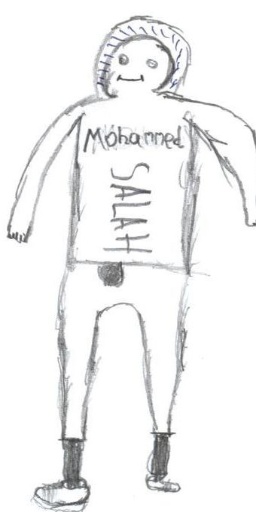 Mohammed
SALAH